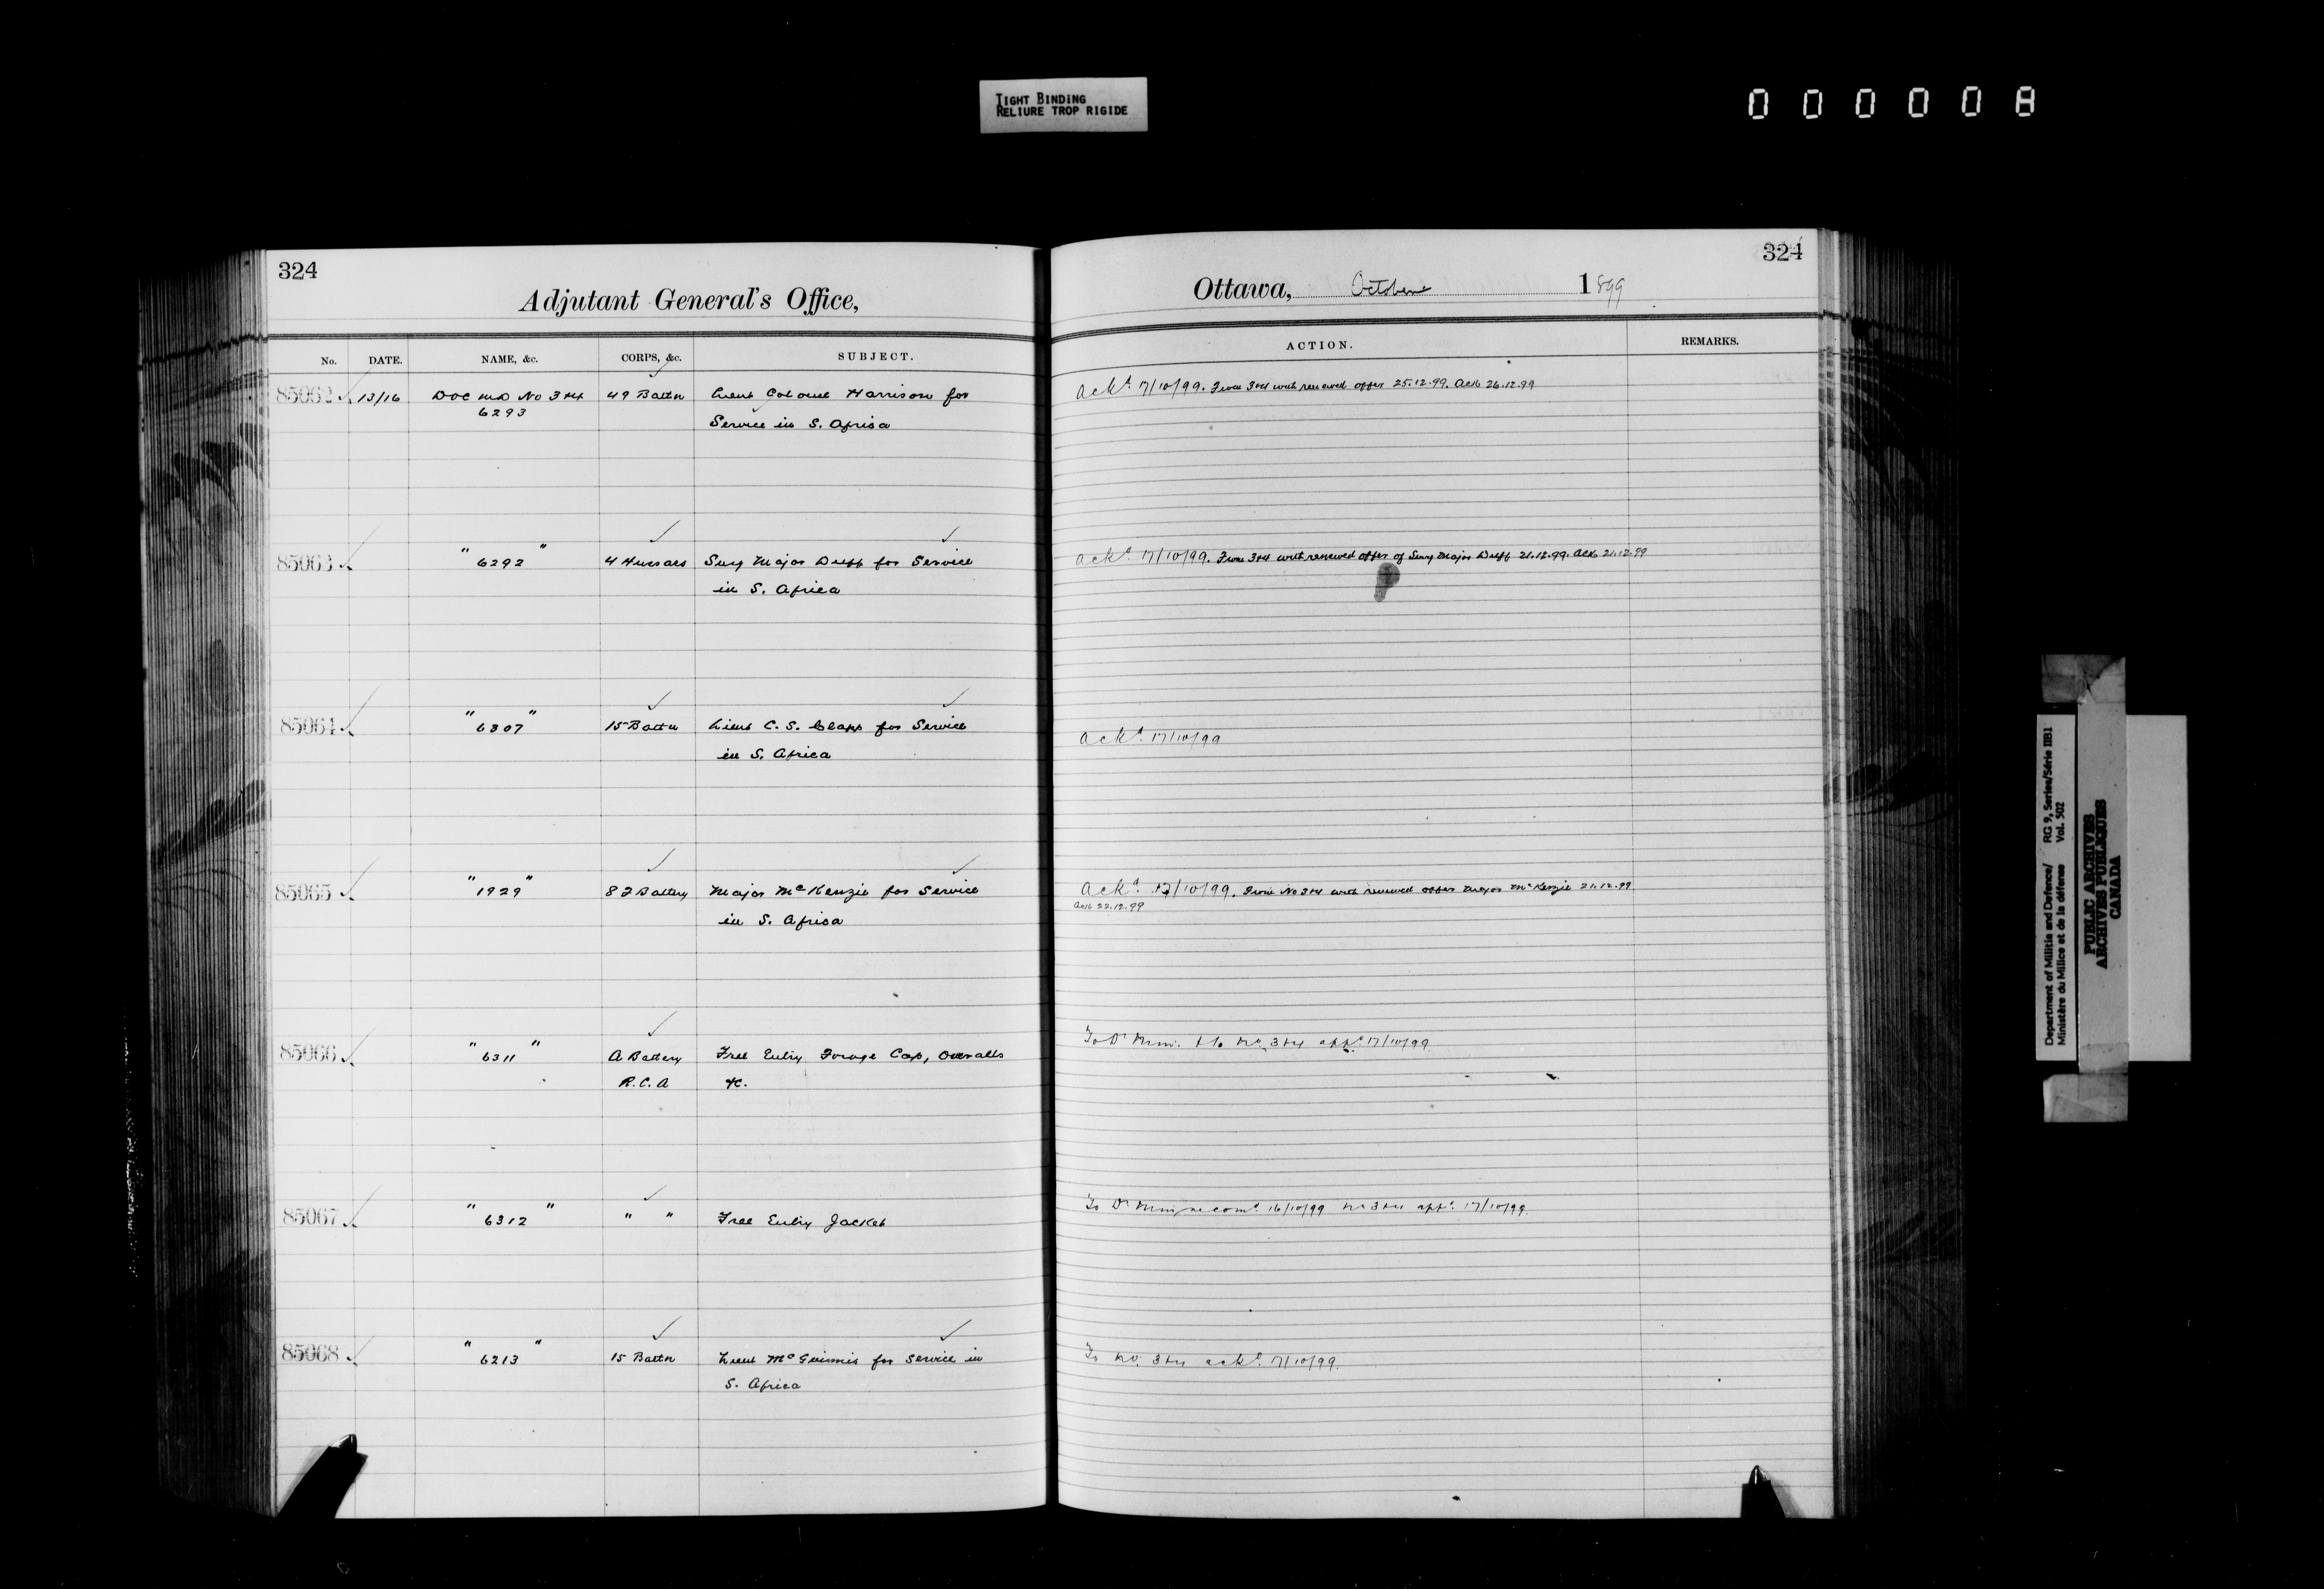 TIGHT BINDING
RELIURE TROP RIGIDE
000008
324
Adjutant General's Office,
No. DATE. NAME, &c. CORPS, &c. SUBJECT.
85062 13/16 DOC MD No 3 & 4 49 Battn Lieut Colonel Harrison for
6293
Service in S. Africa
85063 " 6292 " 4 Hussars Surg Major Duff for Service
in S. Africa
85064 " 6307 " 15 Battn Lieut C. S. Clapp for Service
in S. Africa
85065 " 1929 " 8 F Battery Major McKenzie for Service
in S. Africa
85066 " 6311 " A Battery Free Entry Forage Cap, Overalls
R.C.A &c.
85067 " 6312 " " " Free Entry Jacket
85068 " 6213 " 15 Battn Lieut McGuinnis for Service in
S. Africa
324
Ottawa, October 1899
ACTION. REMARKS.
Ackd. 17/10/99. From 3 & 4 with renewed offer 25.12.99. Ack 26.12.99
Ackd. 17/10/99. From 3 & 4 with renewed offer of Surg Major Duff 21.12.99. Ack 21.12.99
Ackd. 17/10/99
Ackd. 17/10/99. From No 3 & 4 with renewed offer Major McKenzie 21.12.99
Ack 22.12.99
To D Min. No 3 & 4 appd. 17/10/99
To D Min recomd. 16/10/99 No 3 & 4 appd. 17/10/99.
To No. 3 & 4 ackd. 17/10/99.
Department of Militia and Defence/ RG 9, Series/Série IIB1
Ministère du Milice et de la défense Vol. 502
PUBLIC ARCHIVES
ARCHIVES PUBLIQUES
CANADA